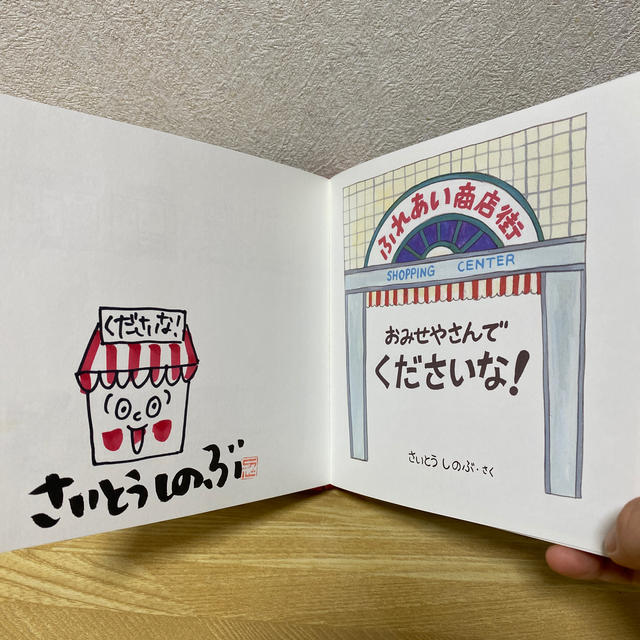 くださいな!
さいとうしのぶ
ふれあい商店街
SHOPPING CENTER
おみせやさんで
くださいな!
さいとうしのぶ・さく